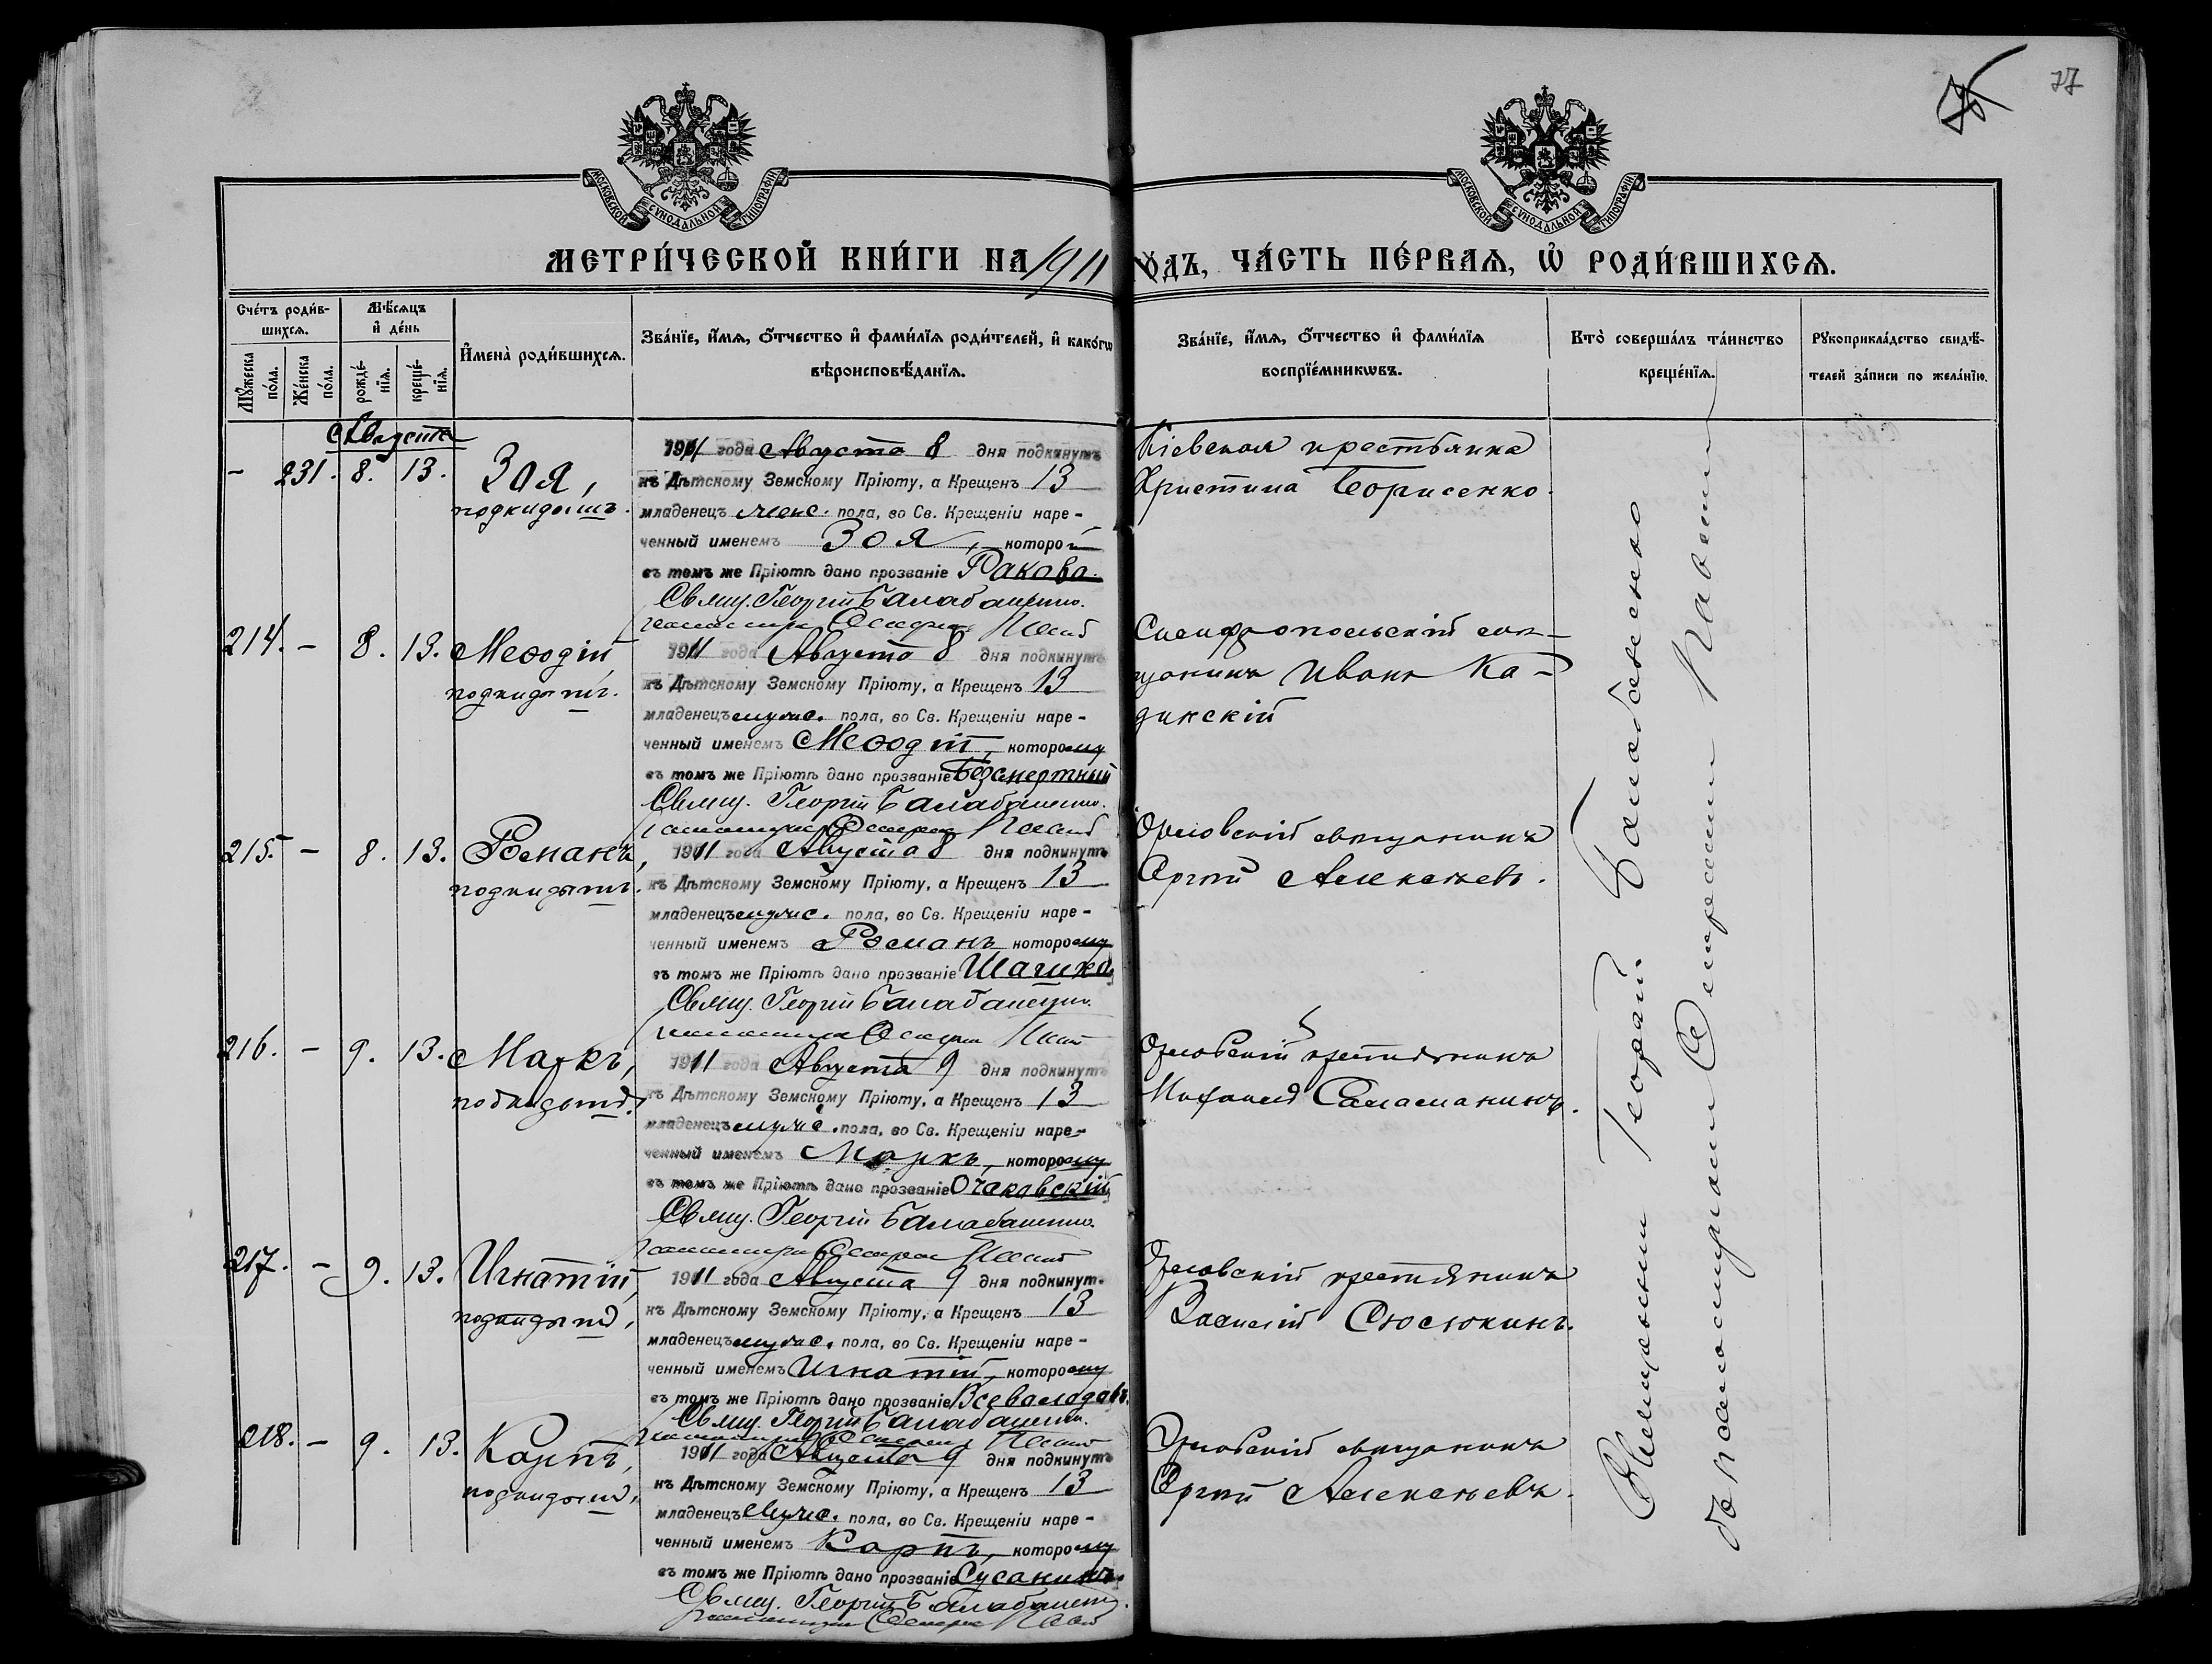 77
МОСКОВСКОЙ СУНОДАЛЬНОЙ ТИПОГРАФІИ
МОСКОВСКОЙ СУНОДАЛЬНОЙ ТИПОГРАФІИ
МЕТРИ́ЧЕСКОЙ КНИ́ГИ НА 1911
ОДЪ, ЧА́СТЬ ПЕ́РВАЯ, Ѡ РОДИ́ВШИХСЯ.
Сче́тъ роди́в-
шихся.
Мѣ́сяцъ
и де́нь
И҆мена̀ роди́вшихся.
Зва́нїе, и҆́мя, о҆́тчество и҆ фами́лїя роди́телей, и҆ како́гѡ
вѣроисповѣ́данїя.
Мꙋ́жеска
по́ла.
Же́нска
по́ла.
рожде́-
нїя.
креще́-
нїя.
Зва́нїе, и҆́мя, о҆́тчество и҆ фами́лїя
воспрїе́мникѡвъ.
Кто̀ соверша́лъ та́инство
креще́нїя.
Рꙋкоприкла́дство свидѣ́-
телей за́писи по жела́нїю.
Августа
- 231. 8. 13. Зоя,
подкидышъ.
1911 года Августа 8 дня подкинутъ
къ Дѣтскому Земскому Пріюту, а Крещенъ 13
младенецъ женс. пола, во Св. Крещеніи наре-
ченный именемъ Зоя, которой
въ томъ же Пріютѣ дано прозваніе Ракова.
Свящ. Георгій Балабаненко.
Кіевская крестьянка
Христина Борисенко.
214. - 8. 13. Меѳодій,
подкидышъ.
1911 года Августа 8 дня подкинутъ
къ Дѣтскому Земскому Пріюту, а Крещенъ 13
младенецъ мужс. пола, во Св. Крещеніи наре-
ченный именемъ Меѳодій, которому
въ томъ же Пріютѣ дано прозваніе Безсмертный
Свящ. Георгій Балабаненко.
Симферопольскій мѣ-
щанинъ Иванъ Ка-
динскій
215. - 8. 13. Романъ,
подкидышъ.
1911 года Августа 8 дня подкинутъ
къ Дѣтскому Земскому Пріюту, а Крещенъ 13
младенецъ мужс. пола, во Св. Крещеніи наре-
ченный именемъ Романъ которому
въ томъ же Пріютѣ дано прозваніе
Свящ. Георгій Балабаненко.
Орловскій мѣщанинъ
Сергій Алексѣевъ.
216. - 9. 13. Маркъ,
подкидышъ.
1911 года Августа 9 дня подкинутъ
къ Дѣтскому Земскому Пріюту, а Крещенъ 13
младенецъ мужс. пола, во Св. Крещеніи наре-
ченный именемъ Маркъ, которому
въ томъ же Пріютѣ дано прозваніе Очаковскій
Свящ. Георгій Балабаненко.
Орловскій крестьянинъ
Михаилъ Саламанинъ.
217. - 9. 13. Игнатій,
подкидышъ,
1911 года Августа 9 дня подкинут.
къ Дѣтскому Земскому Пріюту, а Крещенъ 13
младенецъ мужс. пола, во Св. Крещеніи наре-
ченный именемъ Игнатій, которому
въ томъ же Пріютѣ дано прозваніе Всеволодовъ.
Свящ. Георгій Балабаненко.
Орловскій крестьянинъ
Василій Сюсюкинъ.
218. - 9. 13. Карпъ,
подкидышъ,
1911 года Августа 9 дня подкинутъ
къ Дѣтскому Земскому Пріюту, а Крещенъ 13
младенецъ Мужс. пола, во Св. Крещеніи наре-
ченный именемъ Карпъ, которому
въ томъ же Пріютѣ дано прозваніе Сусанинъ.
Свящ. Георгій Балабаненко.
Орловскій мѣщанинъ
Сергій Алексѣевъ.
Священникъ Георгій Балабаненко